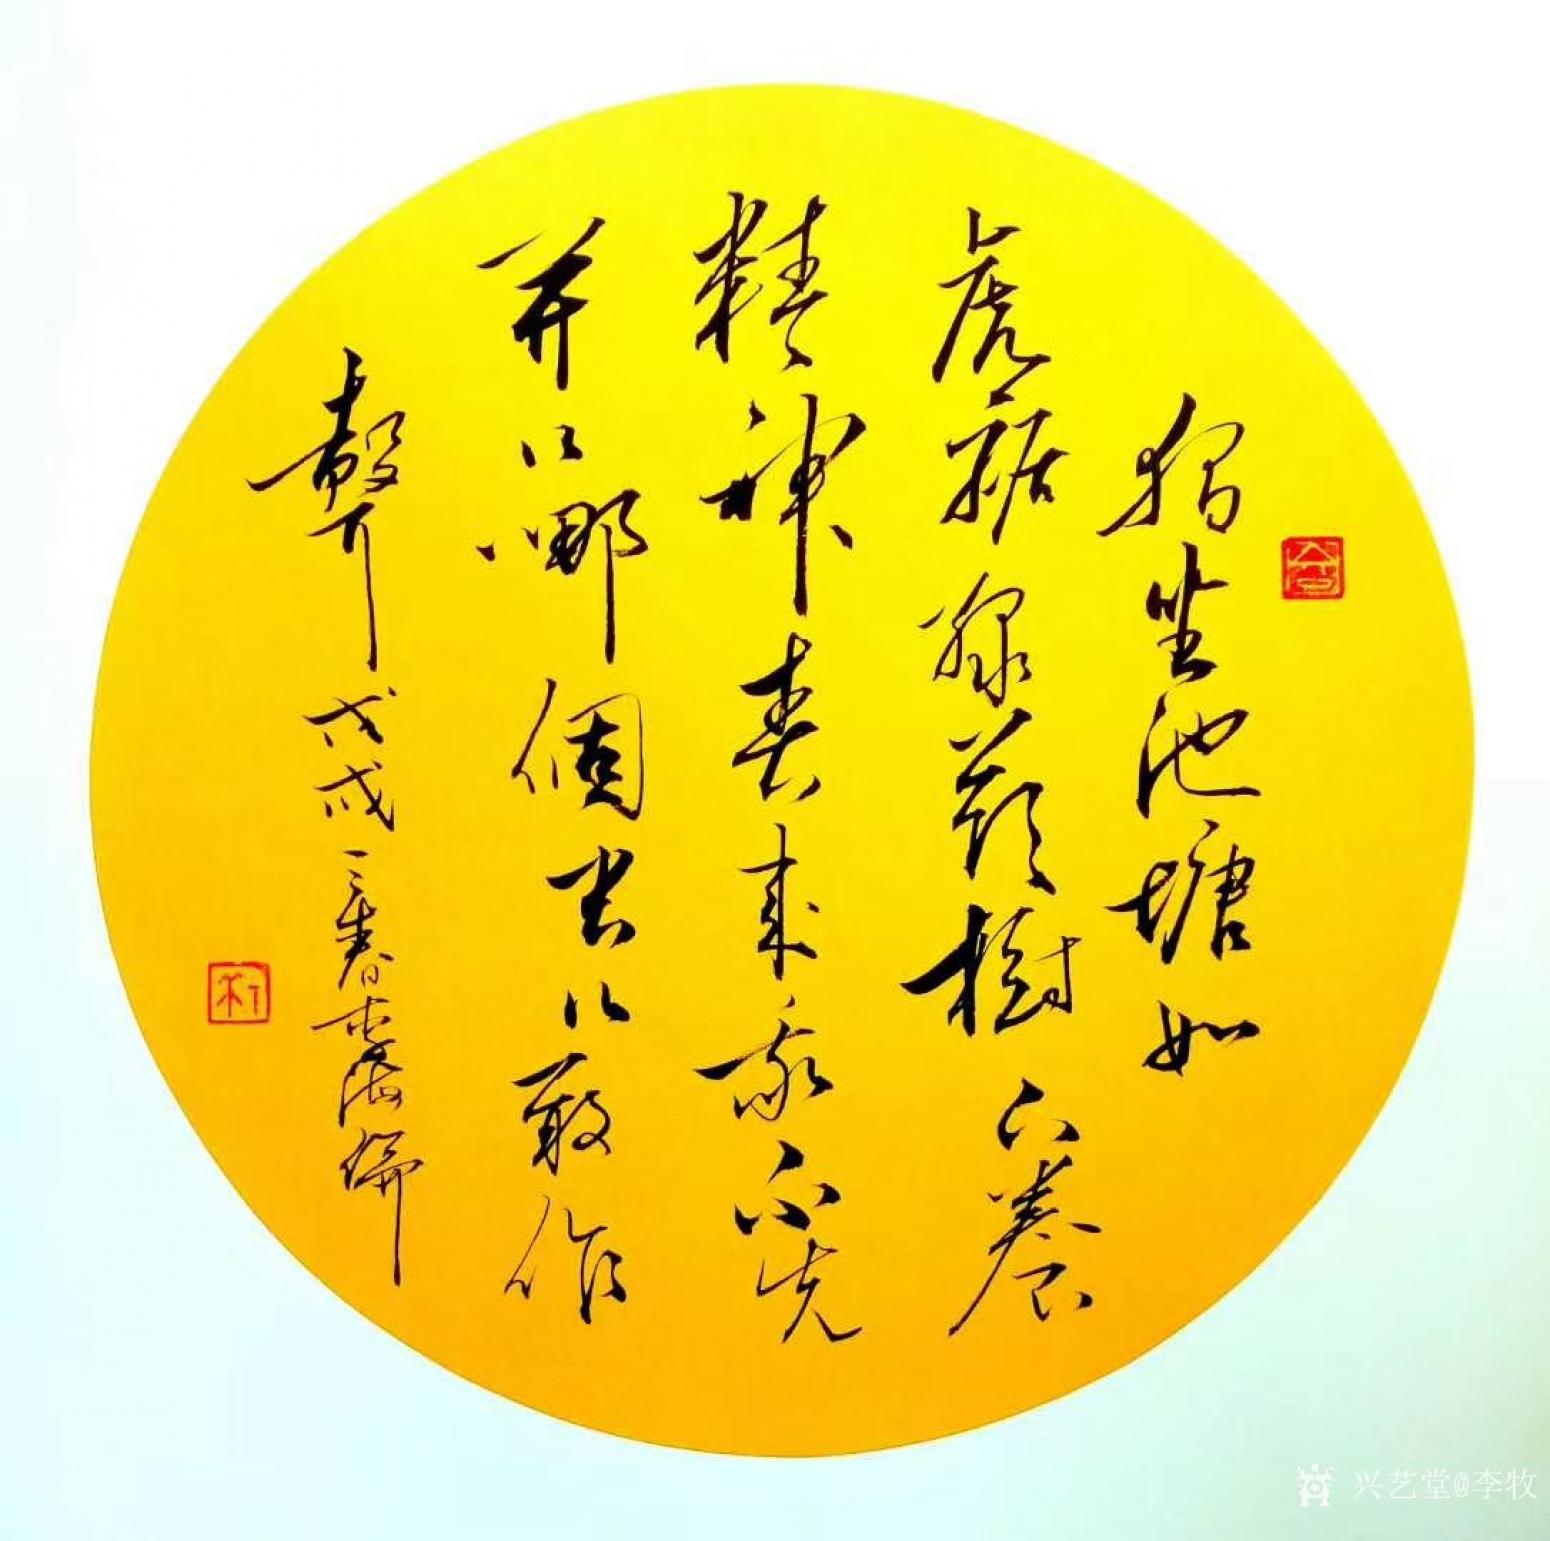 獨坐池塘如
虎踞綠蔭樹下養
精神春來我不先
开口哪個虫儿敢作
聲 戊戌三春李海倫
兴艺堂@李牧